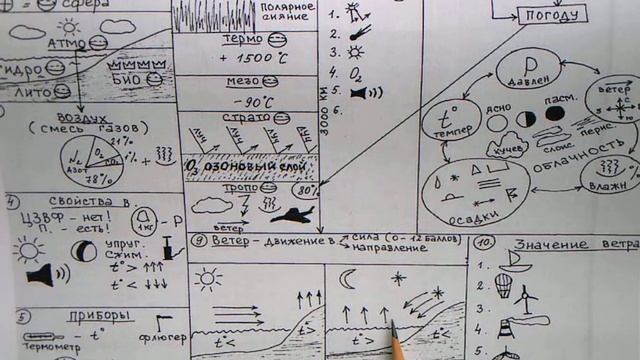 сфера
АТМО
ГИДРО
БИО
ЛИТО
ВОЗДУХ
(СМЕСЬ ГАЗОВ)
21%
O₂
N₂
АЗОТ
78%
4
СВОЙСТВА В.
ЦЗВФ - НЕТ!
П. - ЕСТЬ!
1кг - Р
УПРУГ.
СЖИМ.
t° > ↑↑↑
t° < ↓↓↓
5
ПРИБОРЫ
- t°
ТЕРМОМЕТР
ФЛЮГЕР
ПОЛЯРНОЕ
СИЯНИЕ
ТЕРМО
+ 1500°С
МЕЗО
-90°С
СТРАТО
ЛУЧ ЛУЧ ЛУЧ ЛУЧ
O₃ ОЗОНОВЫЙ СЛОЙ
ТРОПО
80%
ВЕТЕР
3000 КМ
1.
2.
3.
4. O₂
5.
6.
ПОГОДУ
Р
ДАВЛЕН
ВЕТЕР
С
Ю
t°
ТЕМПЕР
ЯСНО
ПАСМ.
КУЧЕВ
СЛОИС.
ПЕРИС.
ОБЛАЧНОСТЬ
ВЛАЖН
ОСАДКИ
9 ВЕТЕР - ДВИЖЕНИЕ В. СИЛА (0-12 БАЛЛОВ)
НАПРАВЛЕНИЕ
t° <
t° >
t° >
t° <
10. ЗНАЧЕНИЕ ВЕТРА
1.
2.
3.
4.
5.